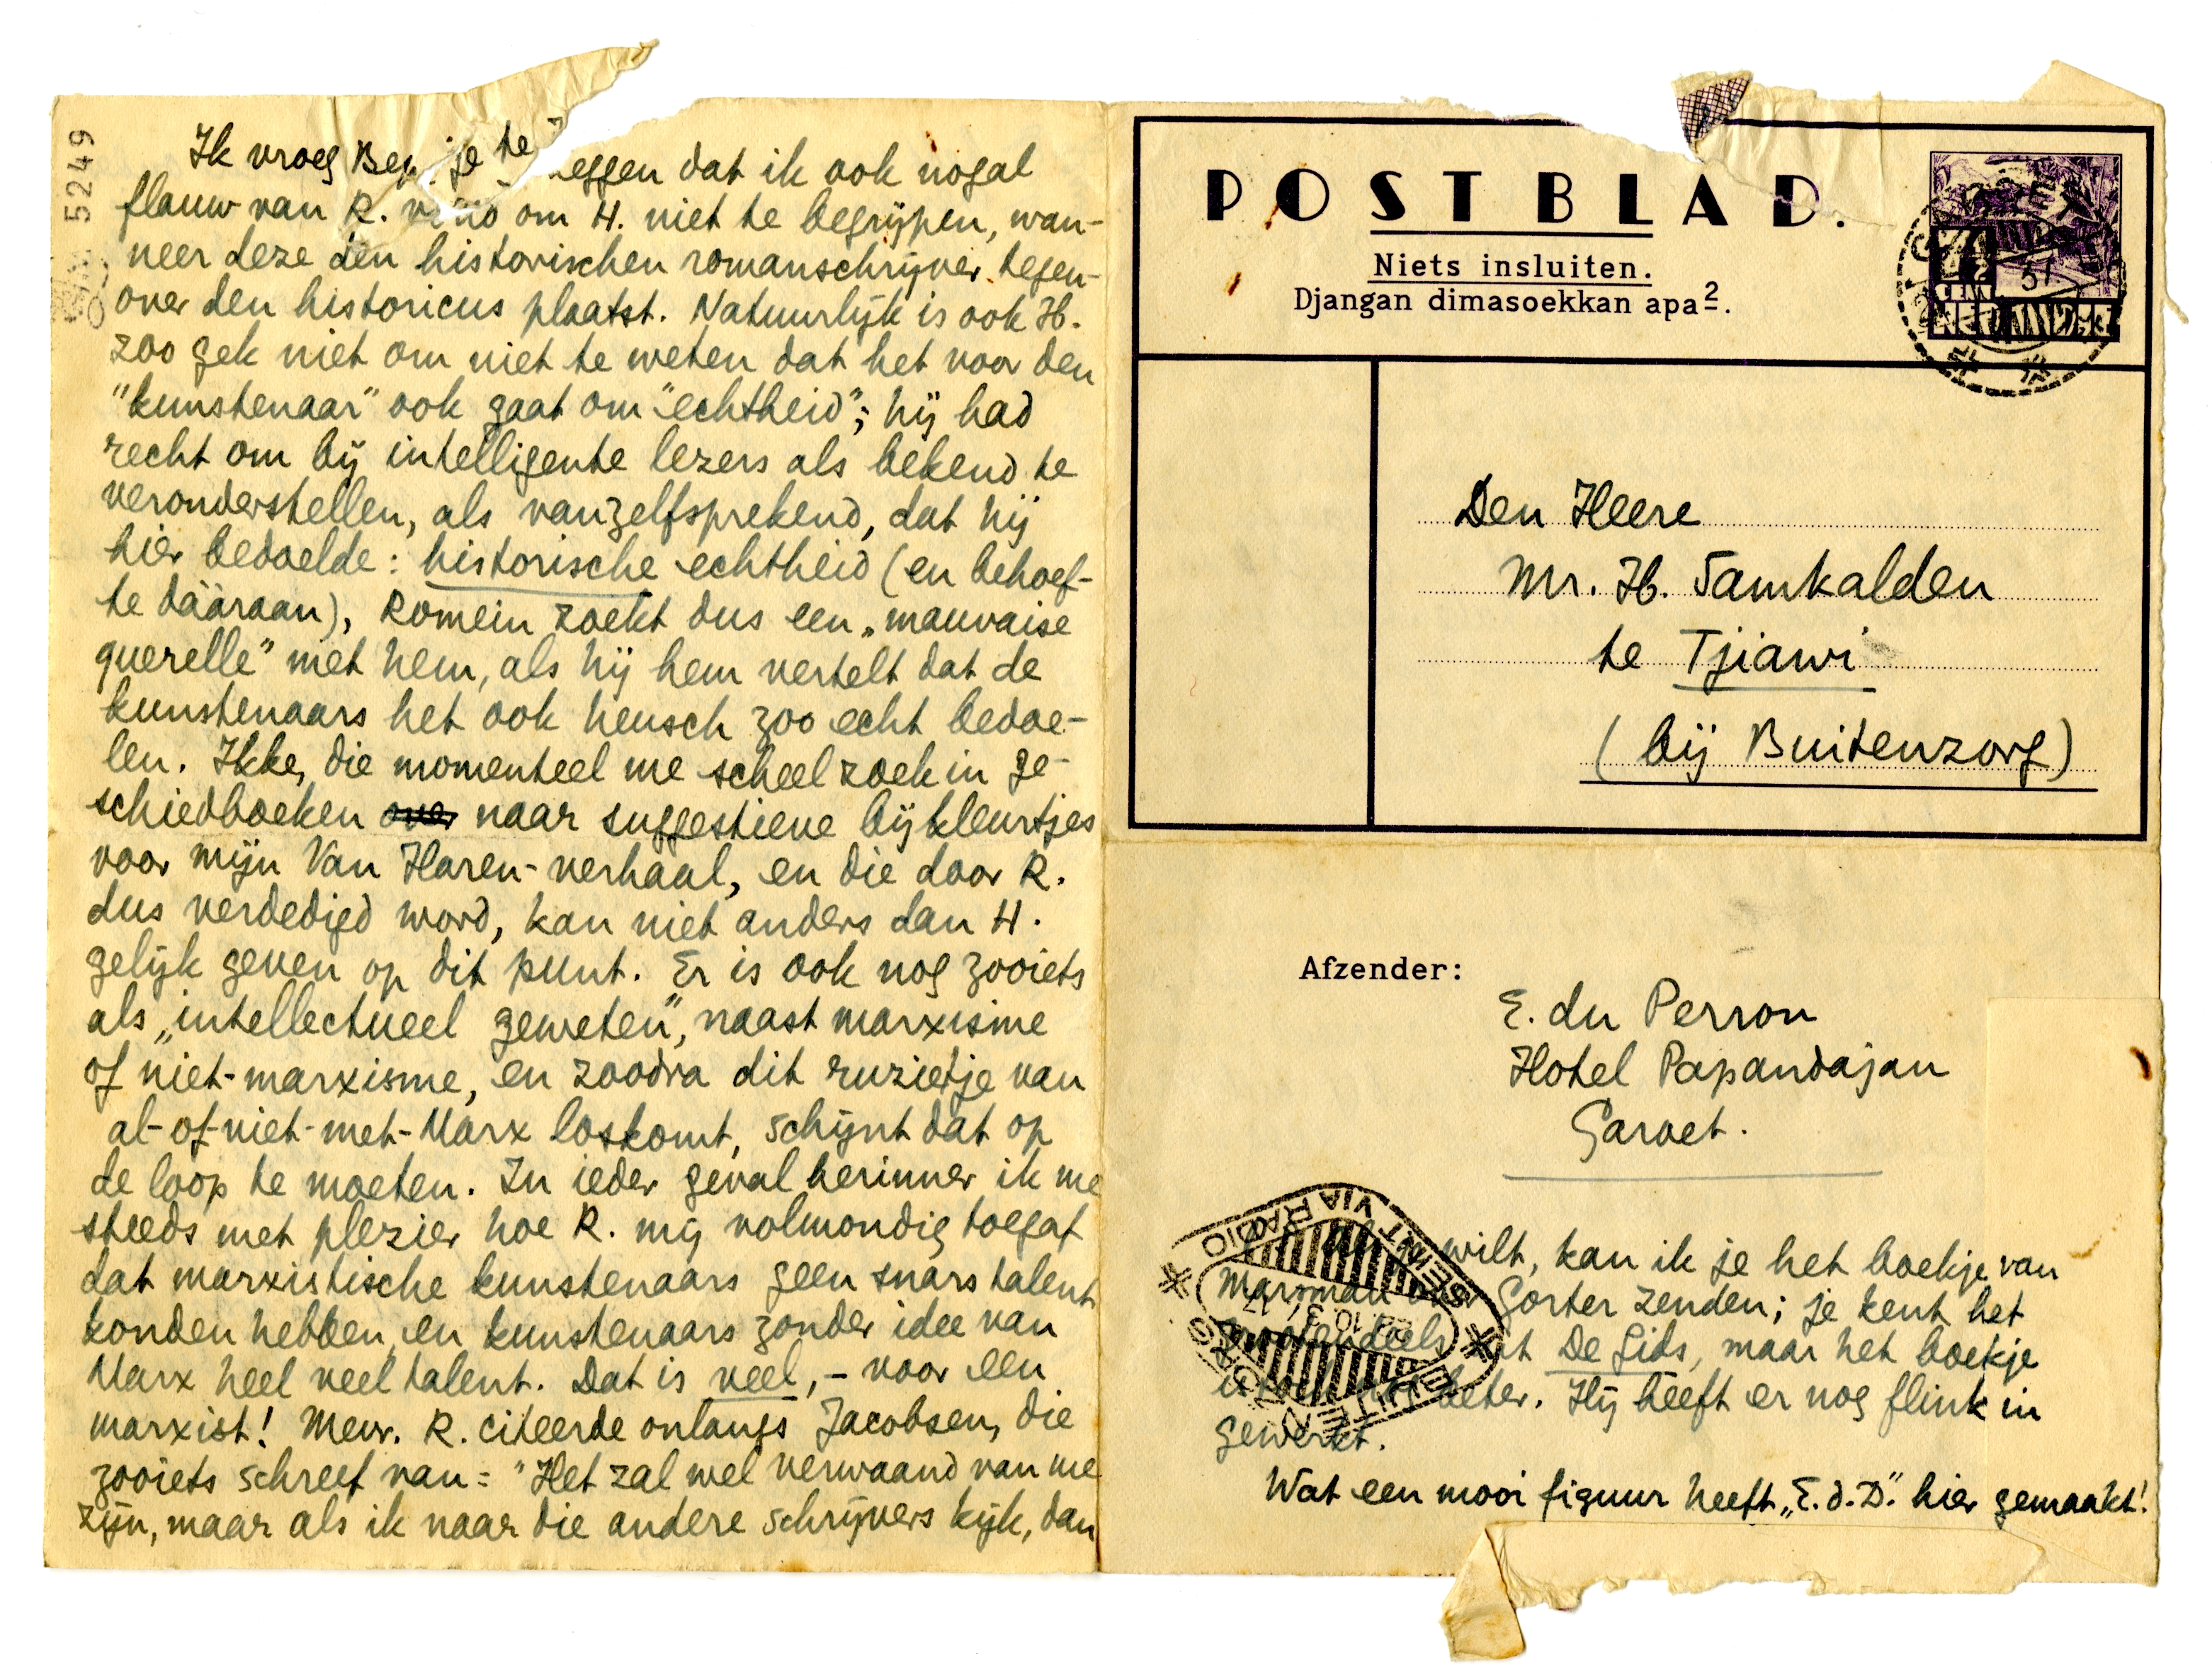 5249
Ik vroeg Bep je te eggen dat ik ook nogal
flauw van R. vond om H. niet te begrijpen, wan-
neer deze den historischen romanschrijver tegen-
over den historicus plaatst. Natuurlijk is ook H.
zoo gek niet om niet te weten dat het voor den
"kunstenaar" ook gaat om "echtheid"; hij had
recht om bij intelligente lezers als bekend te
veronderstellen, als vanzelfsprekend, dat hij
hier bedoelde: historische echtheid (en behoef-
te dááraan), Romein zoekt dus een „mauvaise
querelle" met hem, als hij hem vertelt dat de
kunstenaars het ook heusch zoo echt bedoe-
len. Ikke, die momenteel me scheel zoek in ge-
schiedboeken over naar suggestieve bijkleurtjes
voor mijn Van Haren-verhaal, en die door R.
dus verdedigd word, kan niet anders dan H.
gelijk geven op dit punt. Er is ook nog zooiets
als „intellectueel geweten", naast marxisme
of niet-marxisme, en zoodra dit ruzietje van
al-of-niet-met-Marx loskomt, schijnt dat op
de loop te moeten. In ieder geval herinner ik me
steeds met plezier hoe R. mij volmondig toegaf
dat marxistische kunstenaars geen snars talent
konden hebben en kunstenaars zonder idee van
Marx heel veel talent. Dat is veel, – voor een
marxist! Mevr. R. citeerde onlangs Jacobsen, die
zooiets schreef van: "Het zal wel verwaand van me
zijn, maar als ik naar die andere schrijvers kijk, dan
POSTBLAD.
Niets insluiten.
Djangan dimasoekkan apa².
37
CENT
Den Heere
Mr. H. Samkalden
te Tjiawi
(bij Buitenzorg)
Afzender:
E. du Perron
Hotel Papandajan
Garoet.
SENT VIA RADIO
BUITENZORG
wilt, kan ik je het boekje van
Marsman over Gorter zenden; je kent het
grootendeels uit De Gids, maar het boekje
is beter. Hij heeft er nog flink in
gewerkt.
Wat een mooi figuur heeft „E.d.D." hier gemaakt!